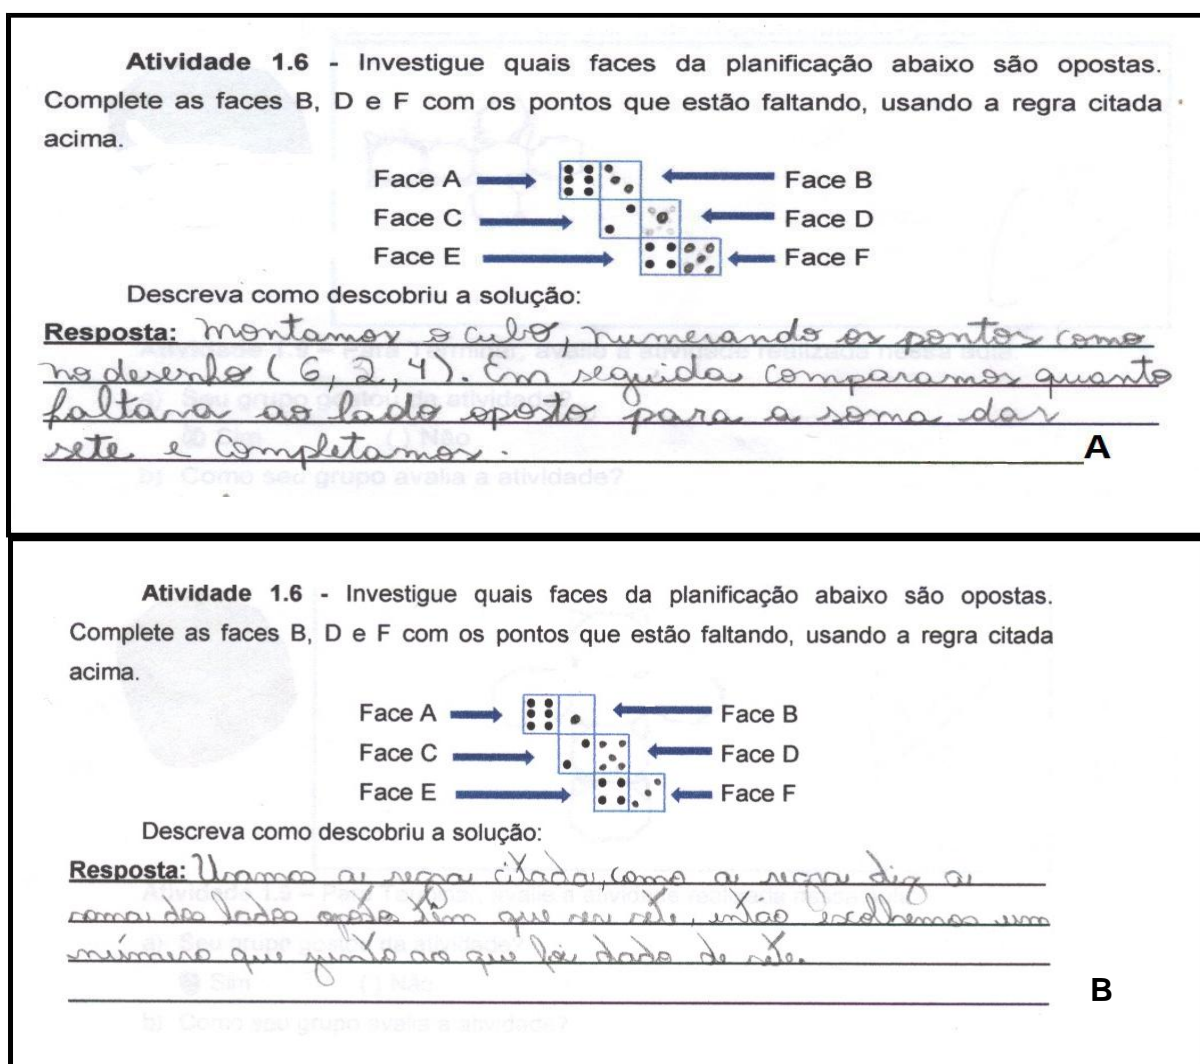 Atividade 1.6 - Investigue quais faces da planificação abaixo são opostas.
Complete as faces B, D e F com os pontos que estão faltando, usando a regra citada
acima.
Face A Face B
Face C Face D
Face E Face F
Descreva como descobriu a solução:
Resposta: montamos o cubo, numerando os pontos como
no desenho (6, 2, 4). Em seguida comparamos quanto
faltava ao lado oposto para a soma dar
sete e completamos.
A
Atividade 1.6 - Investigue quais faces da planificação abaixo são opostas.
Complete as faces B, D e F com os pontos que estão faltando, usando a regra citada
acima.
Face A Face B
Face C Face D
Face E Face F
Descreva como descobriu a solução:
Resposta: Usamos a regra citada, como a regra diz a
soma dos lados opostos têm que ser sete, então escolhemos um
número que junto ao que foi dado de sete.
B